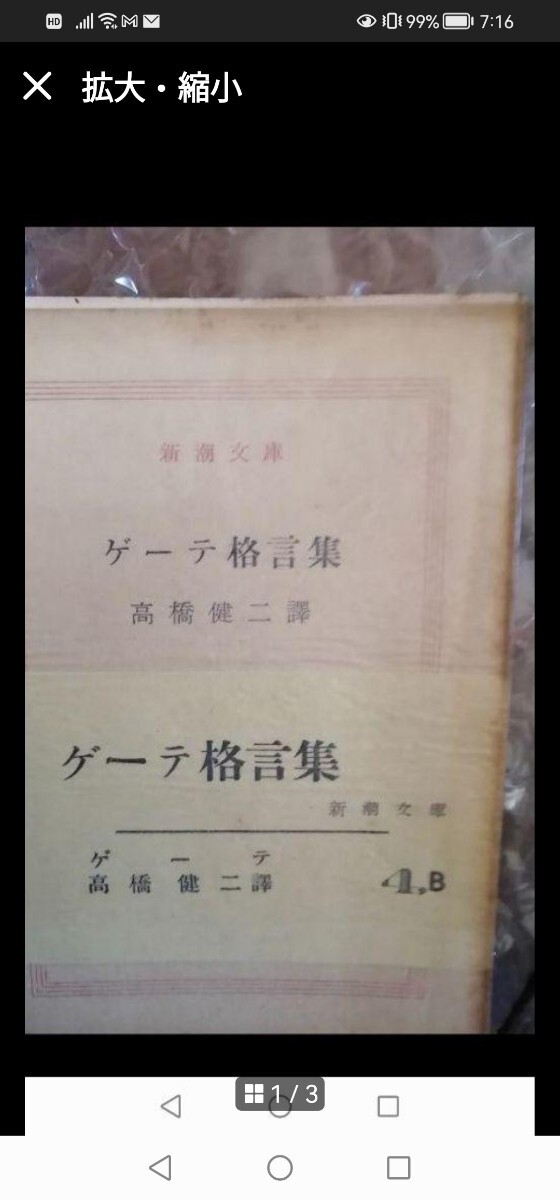 HD 99% 7:16
拡大・縮小
新潮文庫
ゲーテ格言集
高橋健二譯
ゲーテ格言集
新潮文庫
ゲーテ
高橋健二譯
4.B
1 / 3